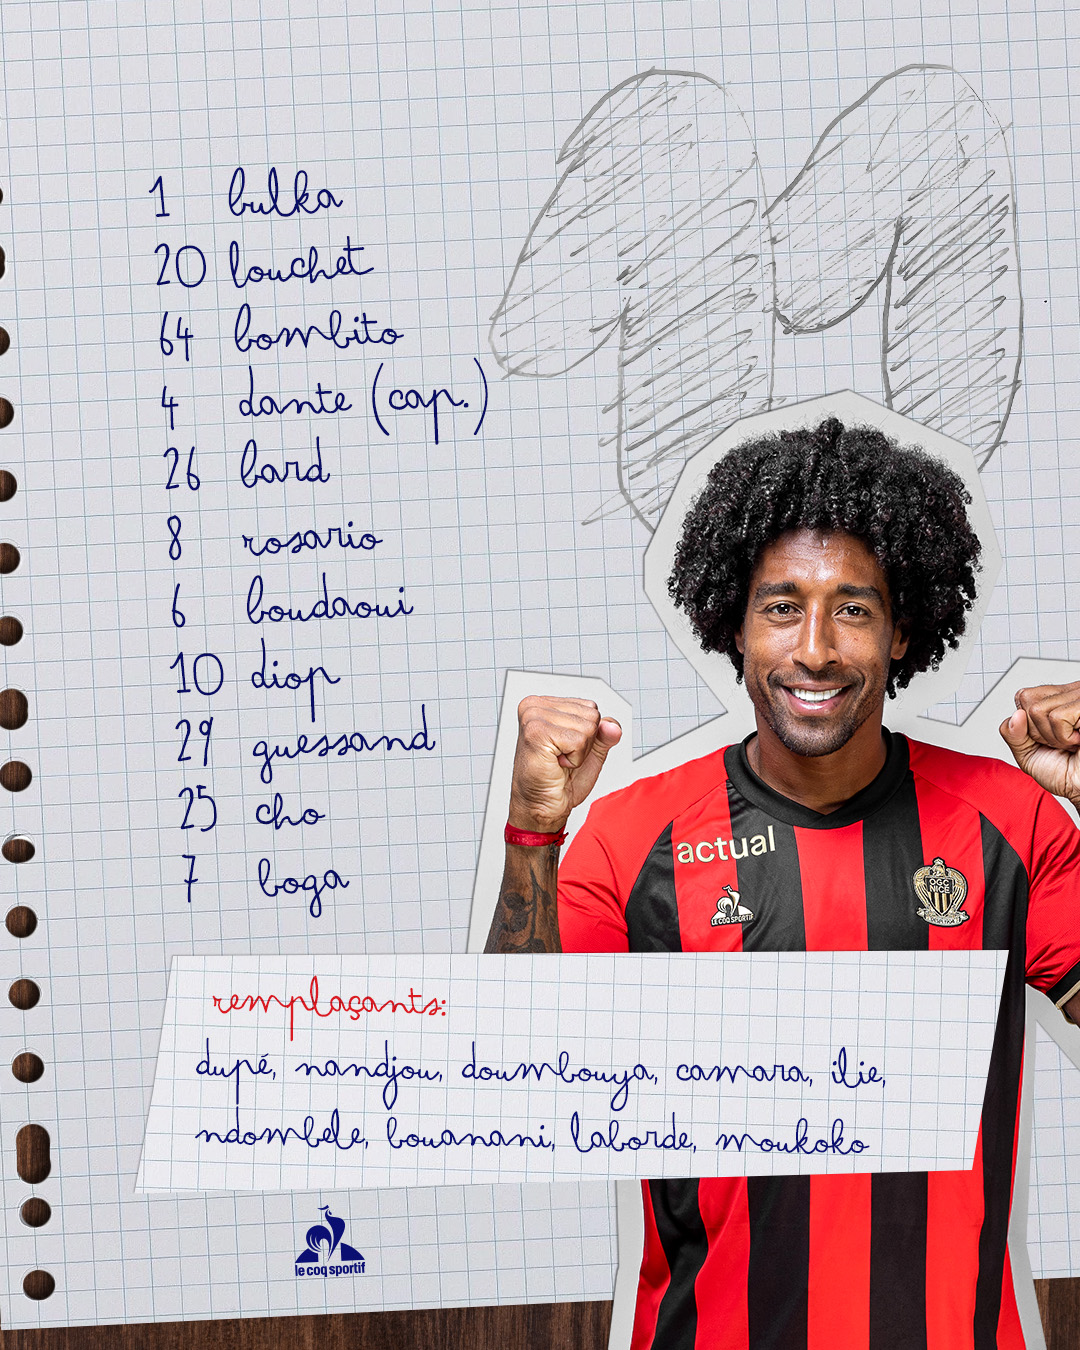 11
1 bulka
20 louchet
64 bombito
4 dante (cap.)
26 bard
8 rosario
6 boudaoui
10 diop
29 guessand
25 cho
7 boga
actual
LE COQ SPORTIF
OGC
NICE
remplaçants:
dupé, nandjou, doumbouya, camara, ilie,
ndombele, bouanani, laborde, moukoko
le coq sportif